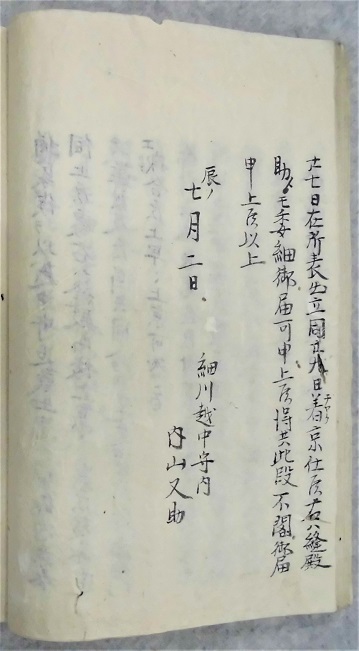 廿七日在所表出立同廿九日着京仕候右ハ縫殿
助ゟモ委細御届可申上候得共此段不閣御届
申上候以上
辰ノ
七月二日
細川越中守内
内山又助